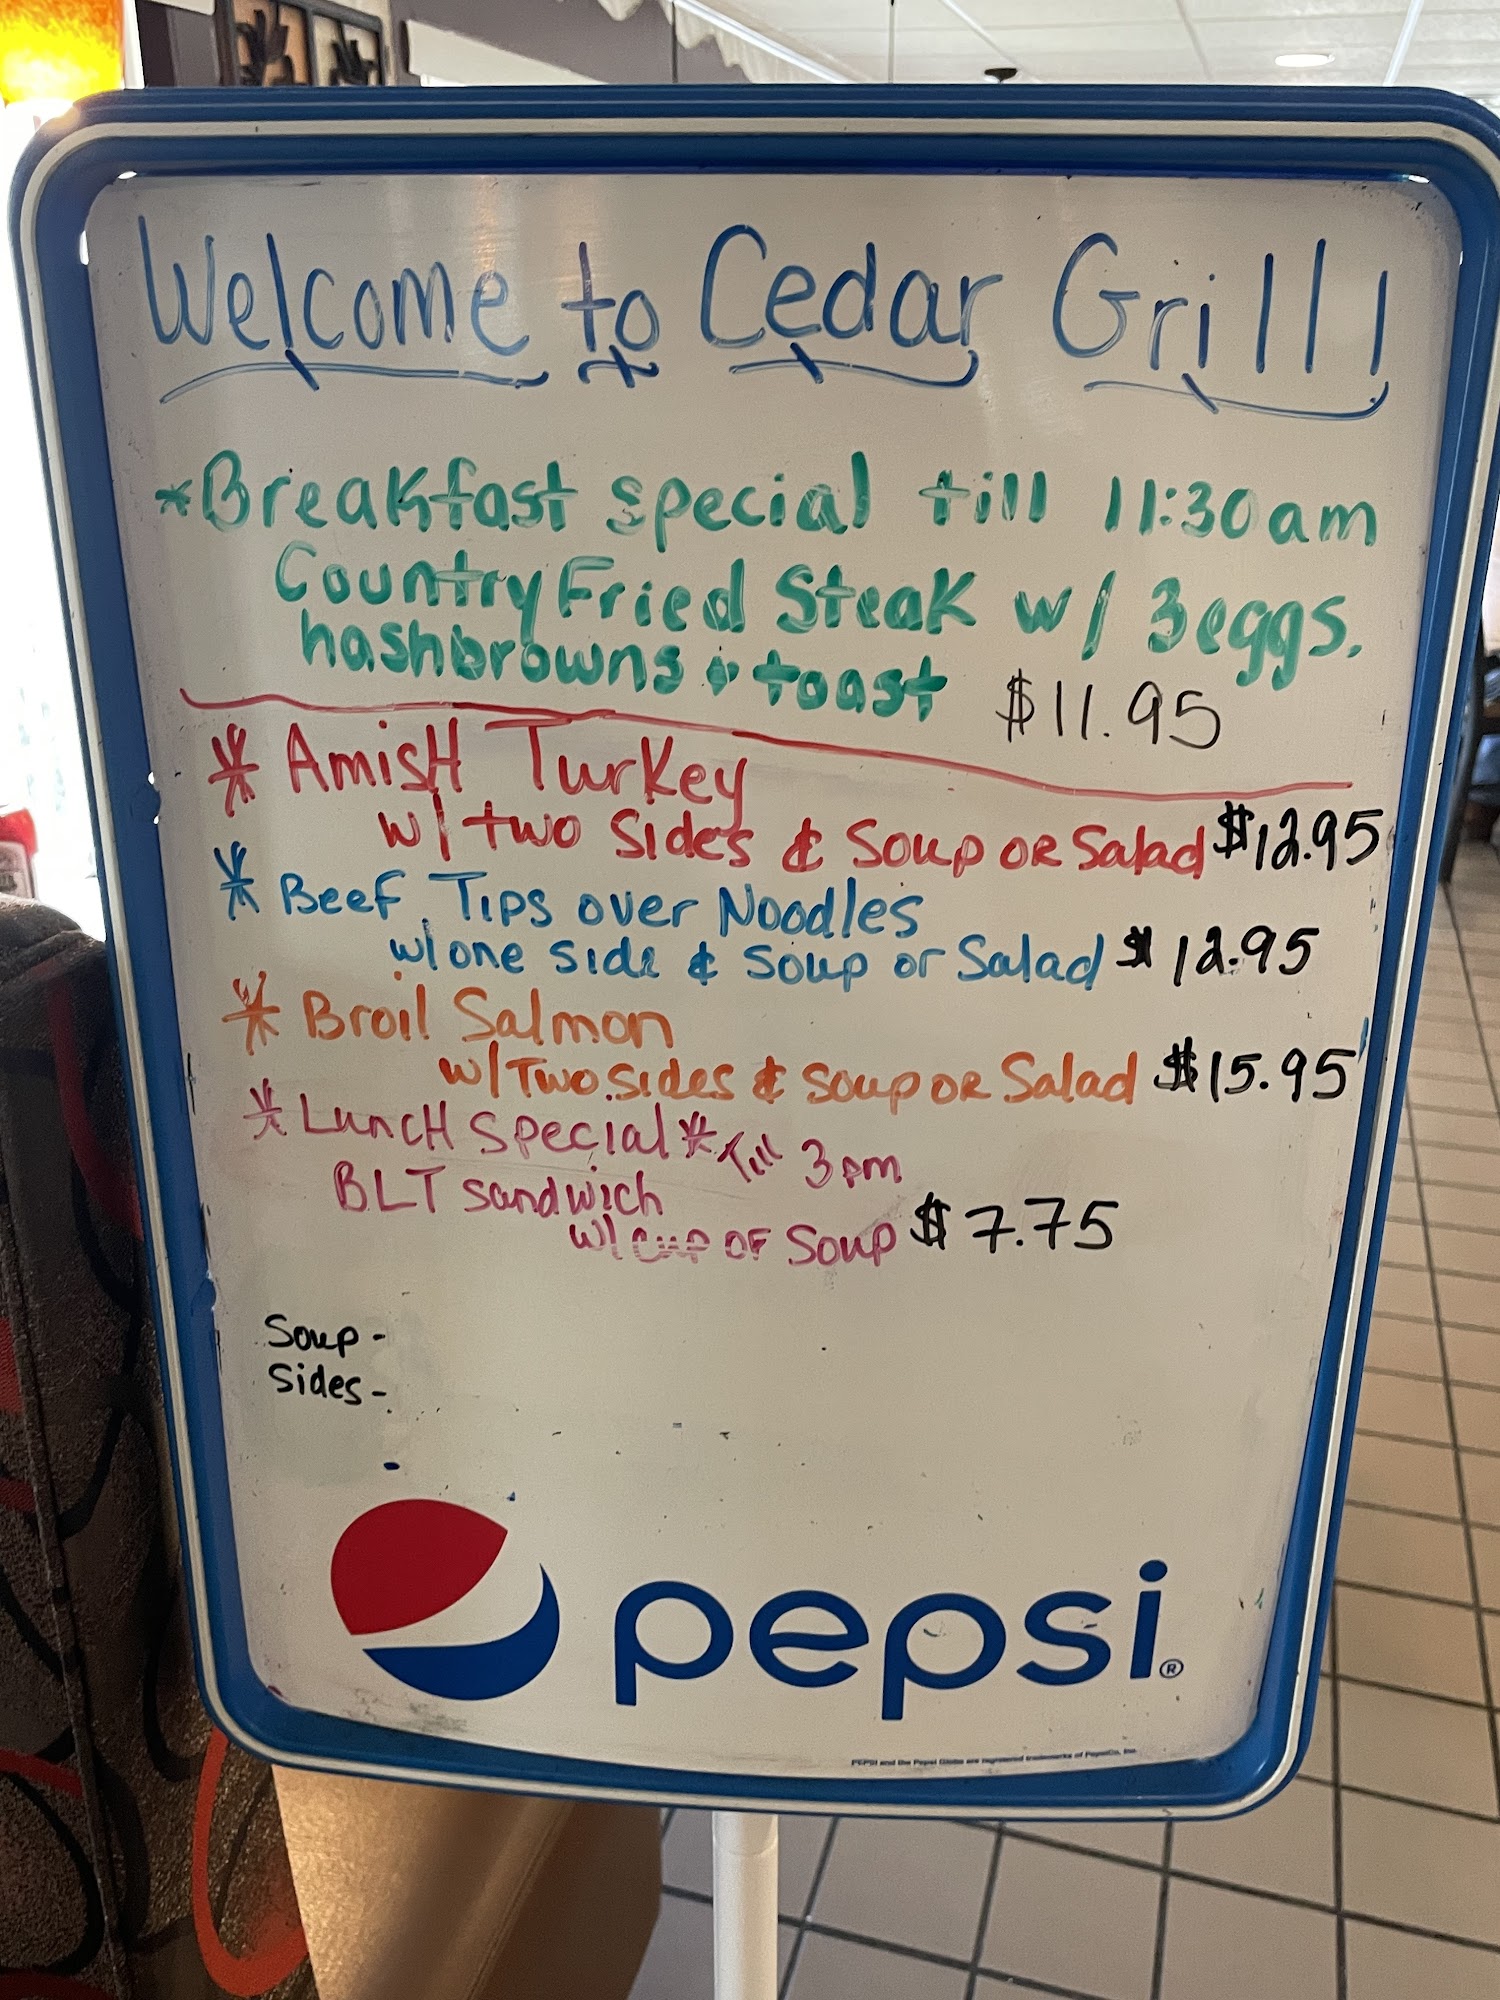 Welcome to Cedar Grill!
*Breakfast special till 11:30am
Country Fried Steak w/ 3eggs.
hashbrowns & toast $11.95
* AmisH Turkey
w/ two Sides & Soup OR Salad $12.95
* Beef Tips over Noodles
w/ one side & Soup or Salad $12.95
* Broil Salmon
w/ Two Sides & Soup OR Salad $15.95
* LuncH Special * Till 3pm
BLT sandwich
w/ cup OF Soup $7.75
Soup -
Sides -
pepsi®
PEPSI and the Pepsi Globe are registered trademarks of PepsiCo, Inc.